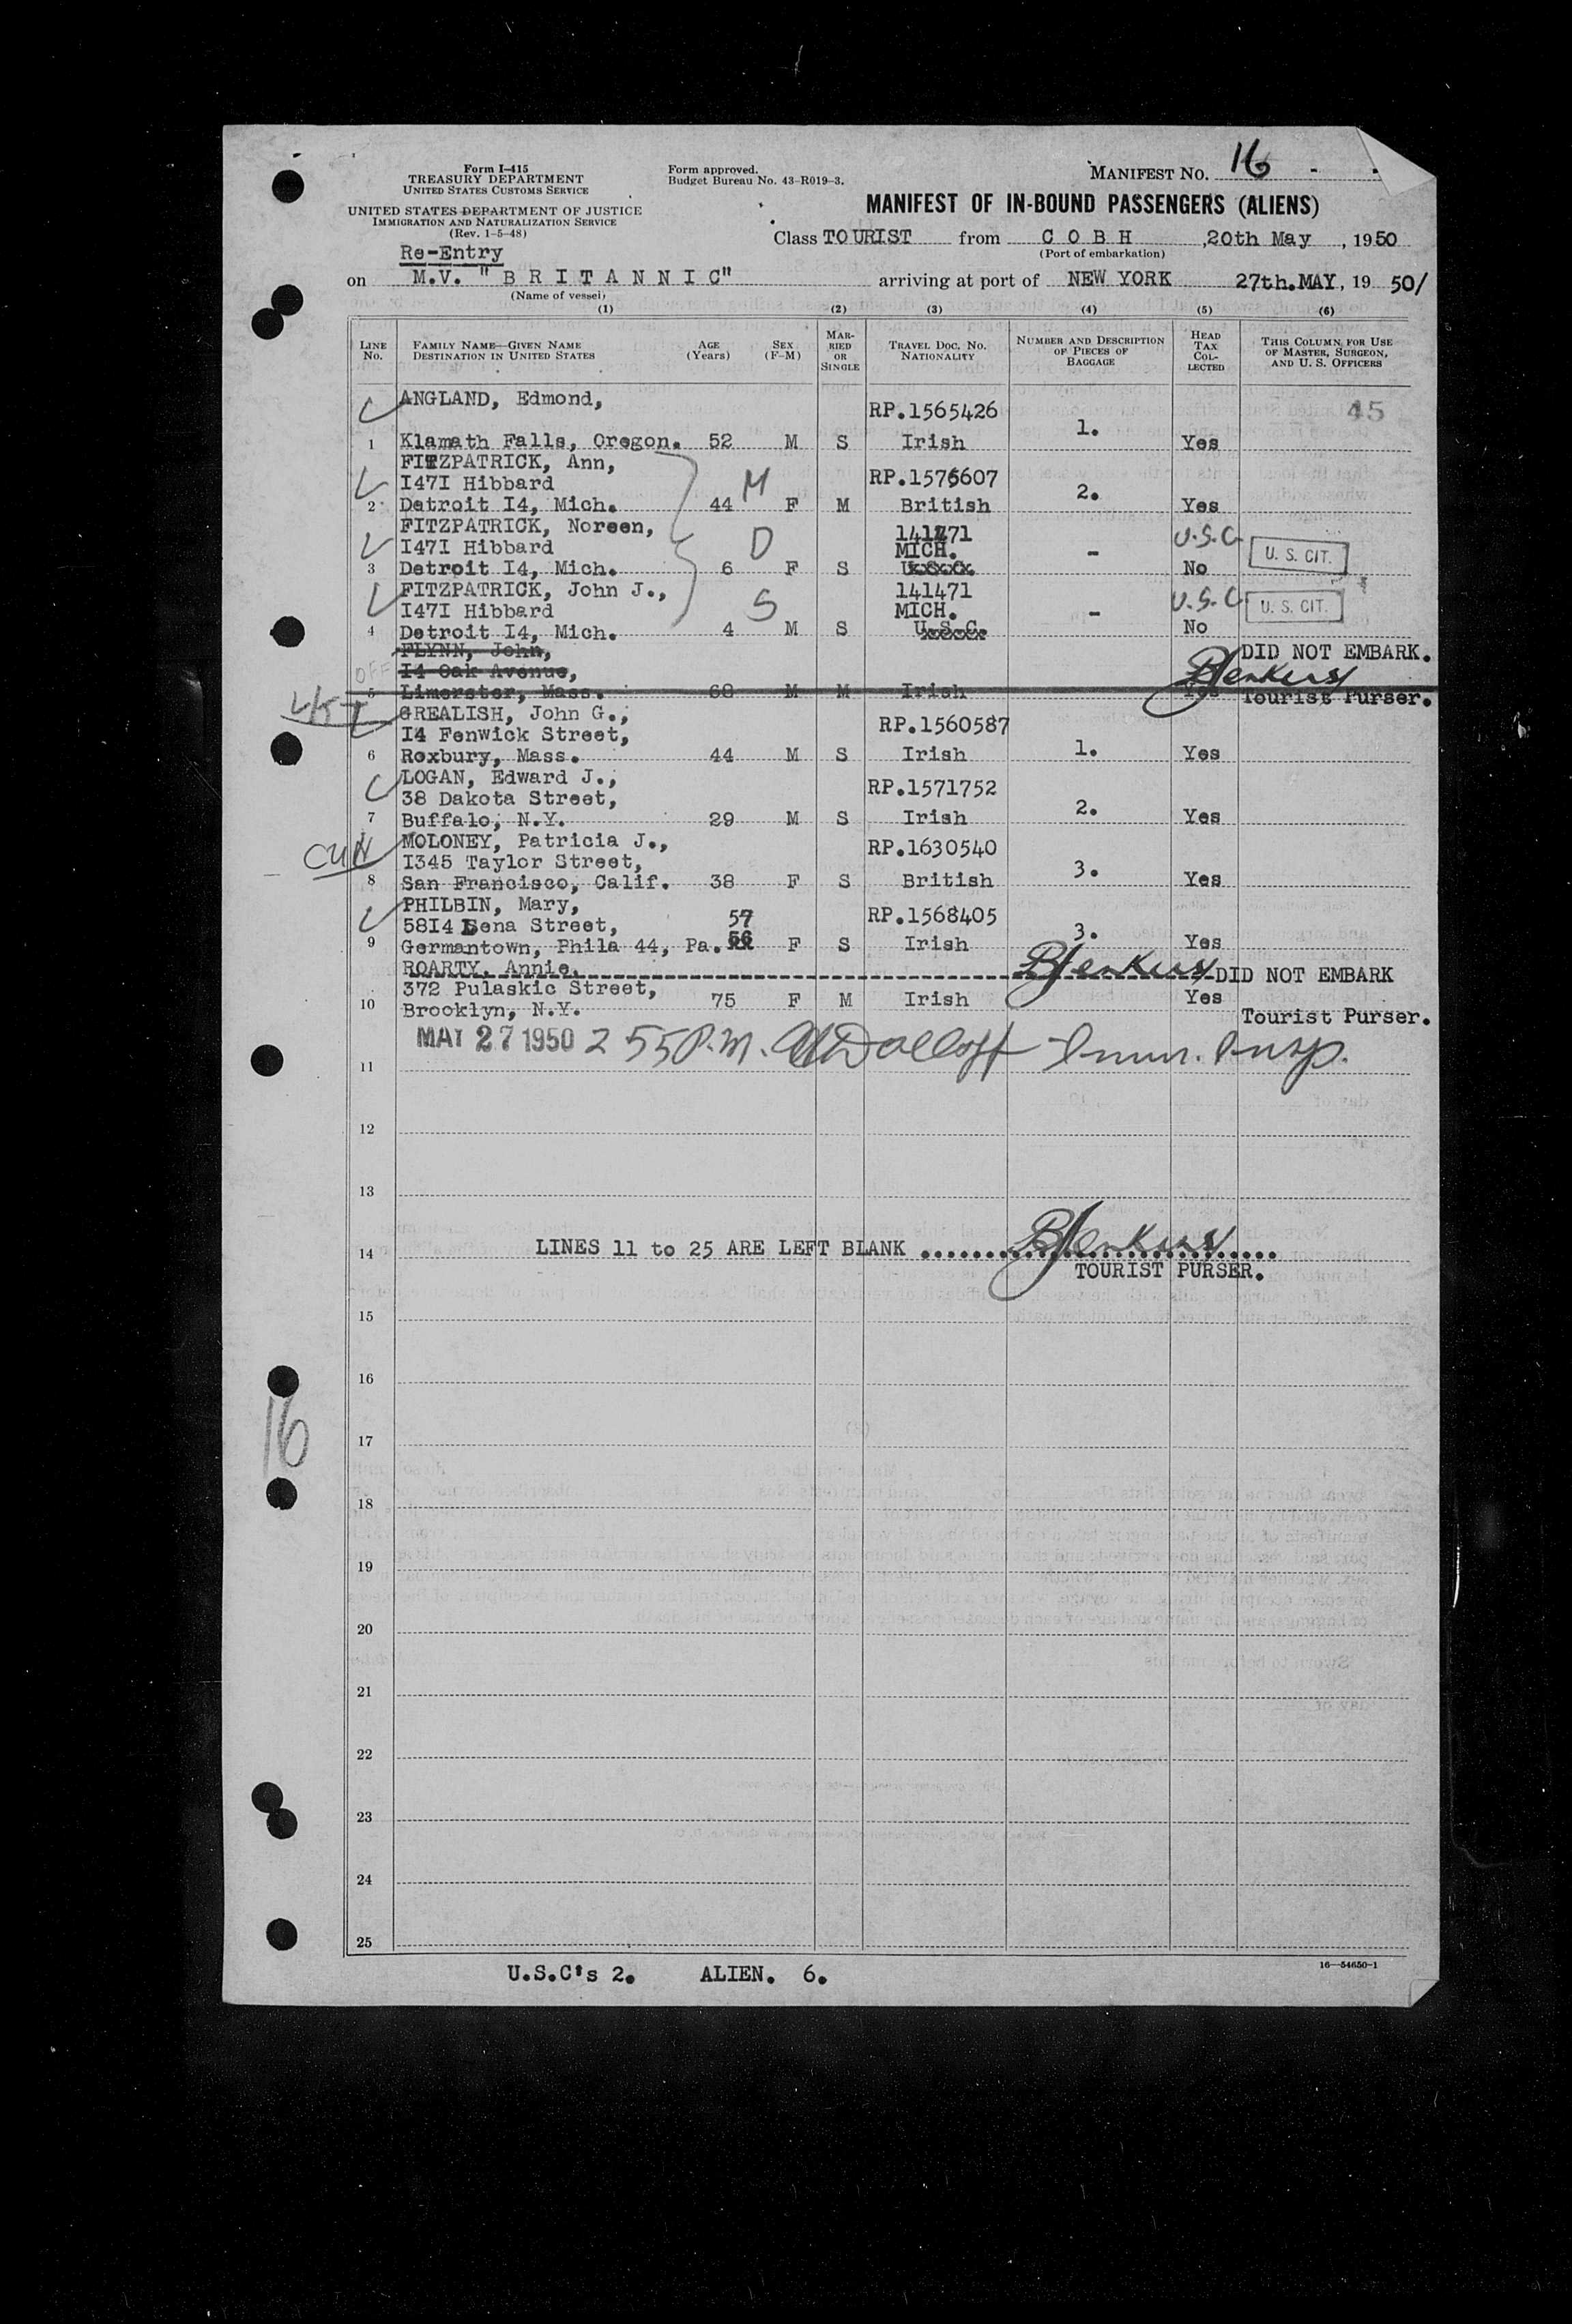 Form I-415
TREASURY DEPARTMENT
UNITED STATES CUSTOMS SERVICE
UNITED STATES DEPARTMENT OF JUSTICE
IMMIGRATION AND NATURALIZATION SERVICE
(Rev. 1-5-48)
Form approved.
Budget Bureau No. 43-R019-3.
MANIFEST NO. 16
MANIFEST OF IN-BOUND PASSENGERS (ALIENS)
Class TOURIST from COBH, 20th May, 1950
(Port of embarkation)
Re-Entry
on M.V. "BRITANNIC" arriving at port of NEW YORK 27th. MAY, 19 50/
(Name of vessel)
(1) (2) (3) (4) (5) (6)
LINE NO. FAMILY NAME—GIVEN NAME DESTINATION IN UNITED STATES AGE (Years) SEX (F-M) MARRIED OR SINGLE TRAVEL DOC. NO. NATIONALITY NUMBER AND DESCRIPTION OF PIECES OF BAGGAGE HEAD TAX COLLECTED THIS COLUMN FOR USE OF MASTER, SURGEON, AND U. S. OFFICERS
ANGLAND, Edmond, RP.1565426 45
1 Klamath Falls, Oregon. 52 M S Irish 1. Yes
FITZPATRICK, Ann,
I47I Hibbard M RP.1575607
2 Detroit I4, Mich. 44 F M British 2. Yes
FITZPATRICK, Noreen, 141271 U.S.C.
I47I Hibbard D MICH. - U. S. CIT.
3 Detroit I4, Mich. 6 F S No
FITZPATRICK, John J., 141471 U.S.C.
I47I Hibbard S MICH. - U. S. CIT.
4 Detroit I4, Mich. 4 M S U.S.C. No
FLYNN, John, DID NOT EMBARK.
OFF I4 Oak Avenue, BJenkins
5 Limerster, Mass. 68 M M Irish Yes Tourist Purser.
GREALISH, John G.,
I4 Fenwick Street, RP.1560587
6 Roxbury, Mass. 44 M S Irish 1. Yes
LOGAN, Edward J.,
38 Dakota Street, RP.1571752
7 Buffalo, N.Y. 29 M S Irish 2. Yes
MOLONEY, Patricia J., RP.1630540
I345 Taylor Street,
8 San Francisco, Calif. 38 F S British 3. Yes
PHILBIN, Mary,
58I4 Lena Street, 57 RP.1568405
9 Germantown, Phila 44, Pa. 56 F S Irish 3. Yes
ROARTY, Annie, BJenkins DID NOT EMBARK
372 Pulaskic Street,
10 Brooklyn, N.Y. 75 F M Irish Yes
Tourist Purser.
MAY 27 1950 2 55 P.m. Dolloff Imm. Insp.
11
12
13
14 LINES 11 to 25 ARE LEFT BLANK BJenkins
TOURIST PURSER.
15
16
16
17
18
19
20
21
22
23
24
25
U.S.C's 2. ALIEN. 6.
16—54650-1